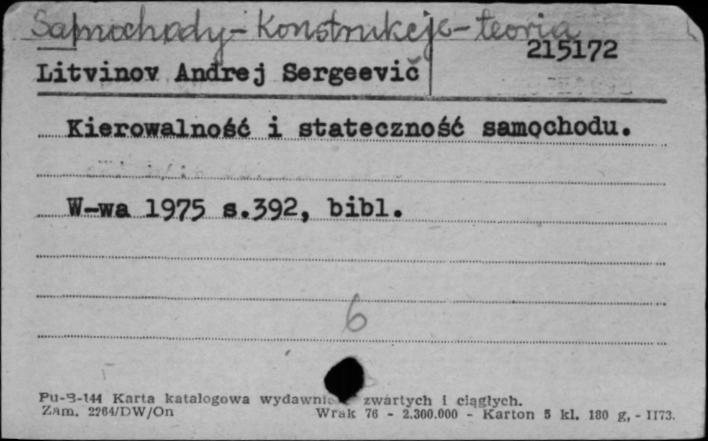 Samochody - konstrukcje - teoria
215172
Litvinov Andrej Sergeevič
Kierowalność i stateczność samochodu.
W-wa 1975 s.392, bibl.
6
Pu-B-144 Karta katalogowa zwartych i ciągłych.
Zam. 2264/DW/On Wrak 76 - 2.300.000 - Karton 5 kl. 180 g, - II73.